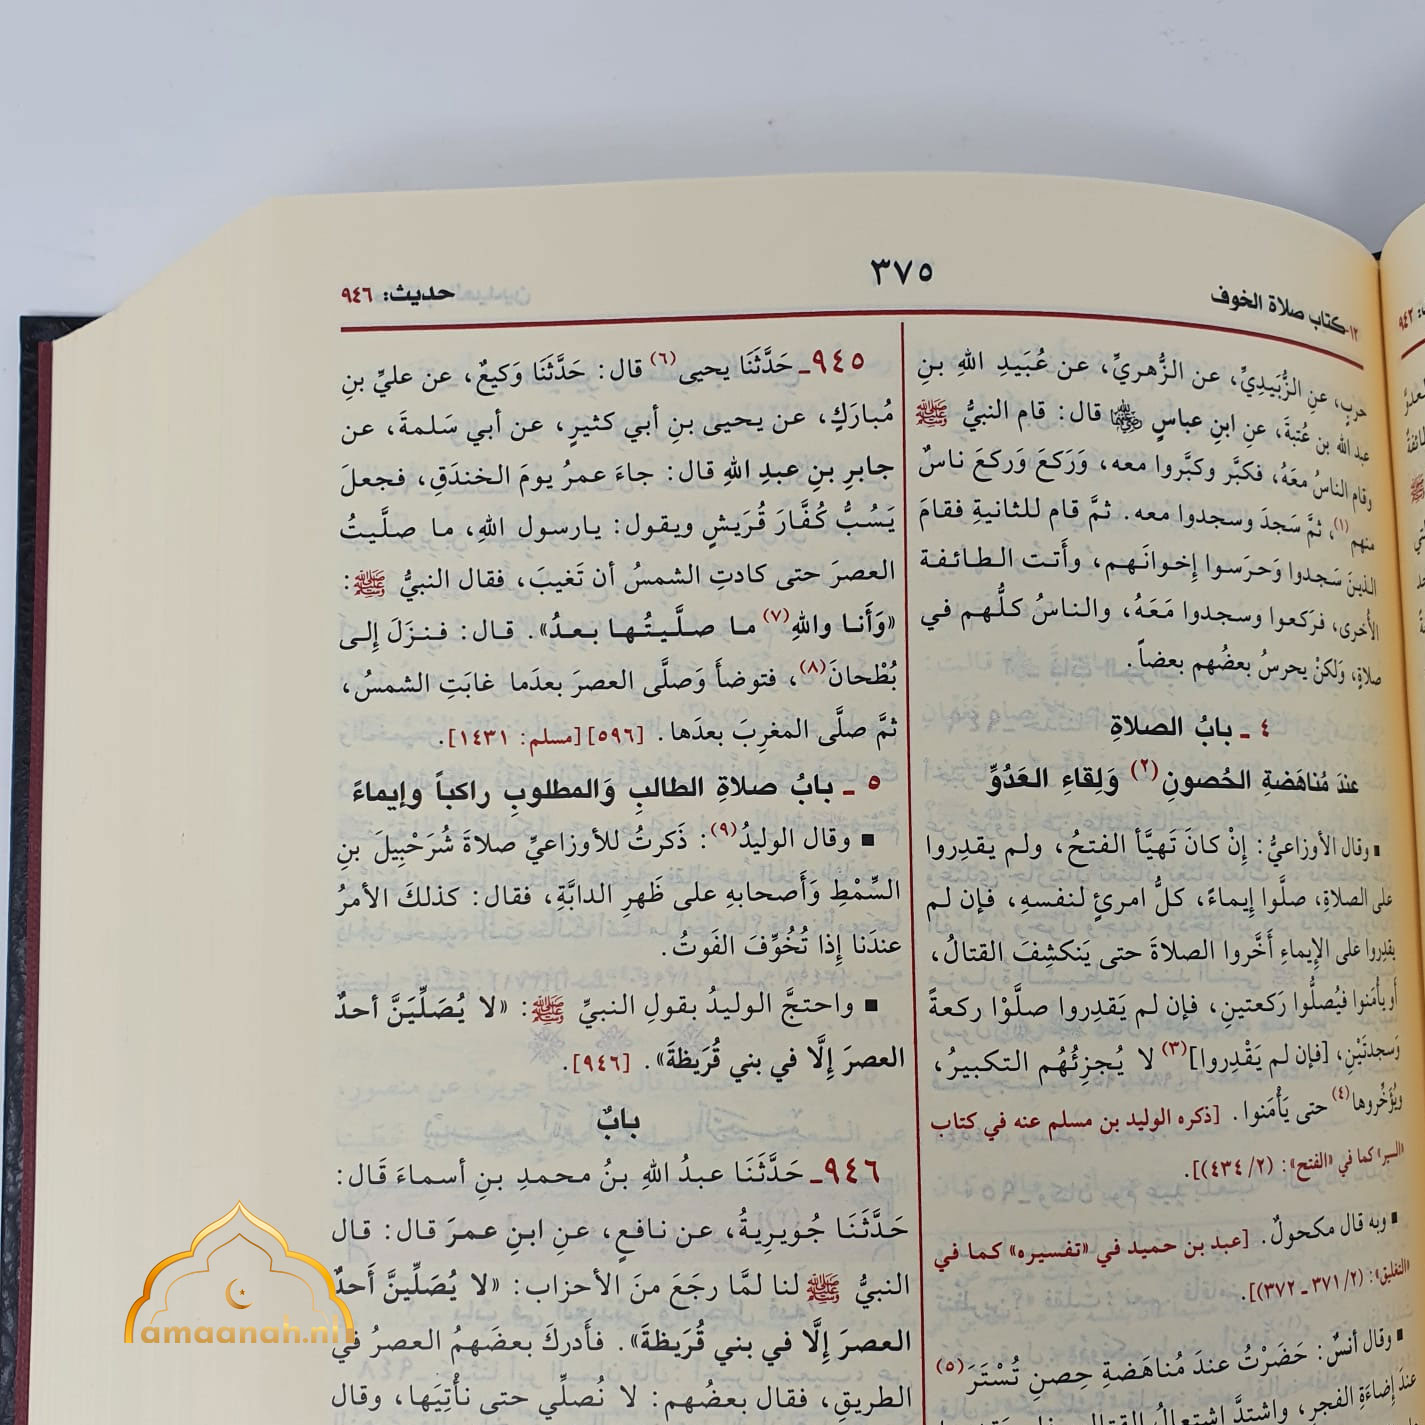 ١٢- كتاب صلاة الخوف
٣٧٥
حديث: ٩٤٦
حربٍ، عنِ الزُّبَيدِيِّ، عن الزُّهريِّ، عن عُبَيدِ اللهِ بنِ
عبد الله بن عُتبةَ، عنِ ابنِ عباسٍ ﵄ قال: قام النبيُّ ﷺ
وقام الناسُ معَهُ، فكبَّر وكبَّروا معه، وَرَكعَ وَركَعَ ناسٌ
منهم(١)، ثمَّ سَجدَ وسجدوا معه. ثمَّ قام للثانيةِ فقامَ
الذينَ سَجدوا وَحرَسوا إِخوانَهم، وأَتت الطائفة
الأُخرى، فرَكعوا وسجدوا مَعَهُ، والناسُ كلُّهم في
صلاةٍ، وَلكنْ يحرسُ بعضُهم بعضاً.
٤ ـ بابُ الصلاةِ
عندَ مُناهَضةِ الحُصونِ(٢) وَلِقاءِ العَدُوِّ
■ وقال الأوزاعيُّ: إِنْ كانَ تَهيَّأ الفتحُ، ولم يقدِروا
على الصلاةِ، صلَّوا إِيماءً، كلُّ امرئٍ لنفسهِ، فإن لم
يقدِروا على الإِيماءِ أَخَّروا الصلاةَ حتى يَنكشِفَ القتالُ،
أو يأْمَنوا فيُصلُّوا رَكعتينِ، فإن لم يَقدِروا صلَّوْا ركعةً
وَسجدتَيْنِ، [فإن لم يَقْدِروا](٣) لا يُجزِئُهُم التكبيرُ،
ويُؤَخِّروها(٤) حتى يَأْمَنوا. [ذكره الوليد بن مسلم عنه في كتاب
«السير» كما في «الفتح»: (٢/ ٤٣٤)].
■ وبه قال مكحولٌ. [عبد بن حميد في «تفسيره» كما في
«التغليق»: (٢/ ٣٧١ ـ ٣٧٢)].
■ وقال أنسٌ: حَضَرْتُ عندَ مُناهَضةِ حِصنِ تُسْتَرَ(٥)
عندَ إِضاءَةِ الفجرِ، واشتدَّ اشتعالُ القتالِ
٩٤٥ـ حَدَّثَنَا يحيى(٦) قال: حَدَّثَنَا وَكيعٌ، عن عليِّ بنِ
مُبارَكٍ، عن يحيى بنِ أبي كثيرٍ، عن أبي سَلمةَ، عن
جابرِ بنِ عبدِ اللهِ قال: جاءَ عمرُ يومَ الخندَقِ، فجعلَ
يَسُبُّ كُفَّارَ قُرَيشٍ ويقول: يارسول اللهِ، ما صلَّيتُ
العصرَ حتى كادتِ الشمسُ أن تَغيبَ، فقال النبيُّ ﷺ:
«وَأَنا واللهِ(٧) ما صلَّيتُها بعدُ». قال: فنزَلَ إلى
بُطْحانَ(٨)، فتوضأَ وَصلَّى العصرَ بعدَما غابَتِ الشمسُ،
ثمَّ صلَّى المغرِبَ بعدَها. [٥٩٦] [مسلم: ١٤٣١].
٥ ـ بابُ صلاةِ الطالبِ وَالمطلوبِ راكباً وإيماءً
■ وقال الوليدُ(٩): ذَكرتُ للأوزاعيِّ صلاةَ شُرَحْبِيلَ بنِ
السِّمْطِ وَأَصحابهِ على ظَهرِ الدابَّةِ، فقال: كذلكَ الأمرُ
عندَنا إِذا تُخُوِّفَ الفَوتُ.
■ واحتجَّ الوليدُ بقولِ النبيِّ ﷺ: «لا يُصَلِّيَنَّ أحدٌ
العصرَ إِلَّا في بني قُرَيظةَ». [٩٤٦].
بابٌ
٩٤٦ـ حَدَّثَنَا عبدُ اللهِ بنُ محمدِ بنِ أسماءَ قَال:
حَدَّثَنَا جُويرِيةُ، عن نافعٍ، عنِ ابنِ عمرَ قال: قال
النبيُّ ﷺ لنا لمَّا رجَعَ منَ الأحزاب: «لا يُصَلِّينَّ أَحدٌ
العصرَ إِلَّا في بني قُرَيظةَ». فأَدركَ بعضَهمُ العصرُ في
الطريقِ، فقال بعضُهم: لا نُصلِّي حتى نأْتِيَها، وقال
amaanah.nl